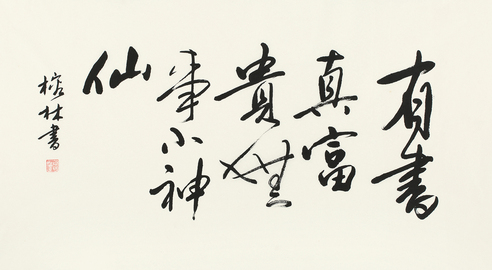 有書
真富
貴無
事小神
仙
榕林書